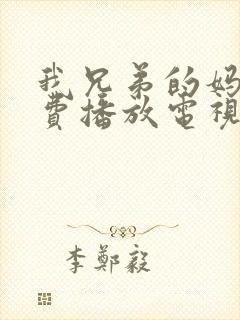 我兄弟的妈
费播放電視
李鄭毅